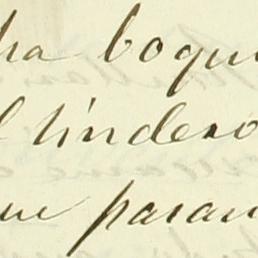 ha boqu
l lindero
ue paran